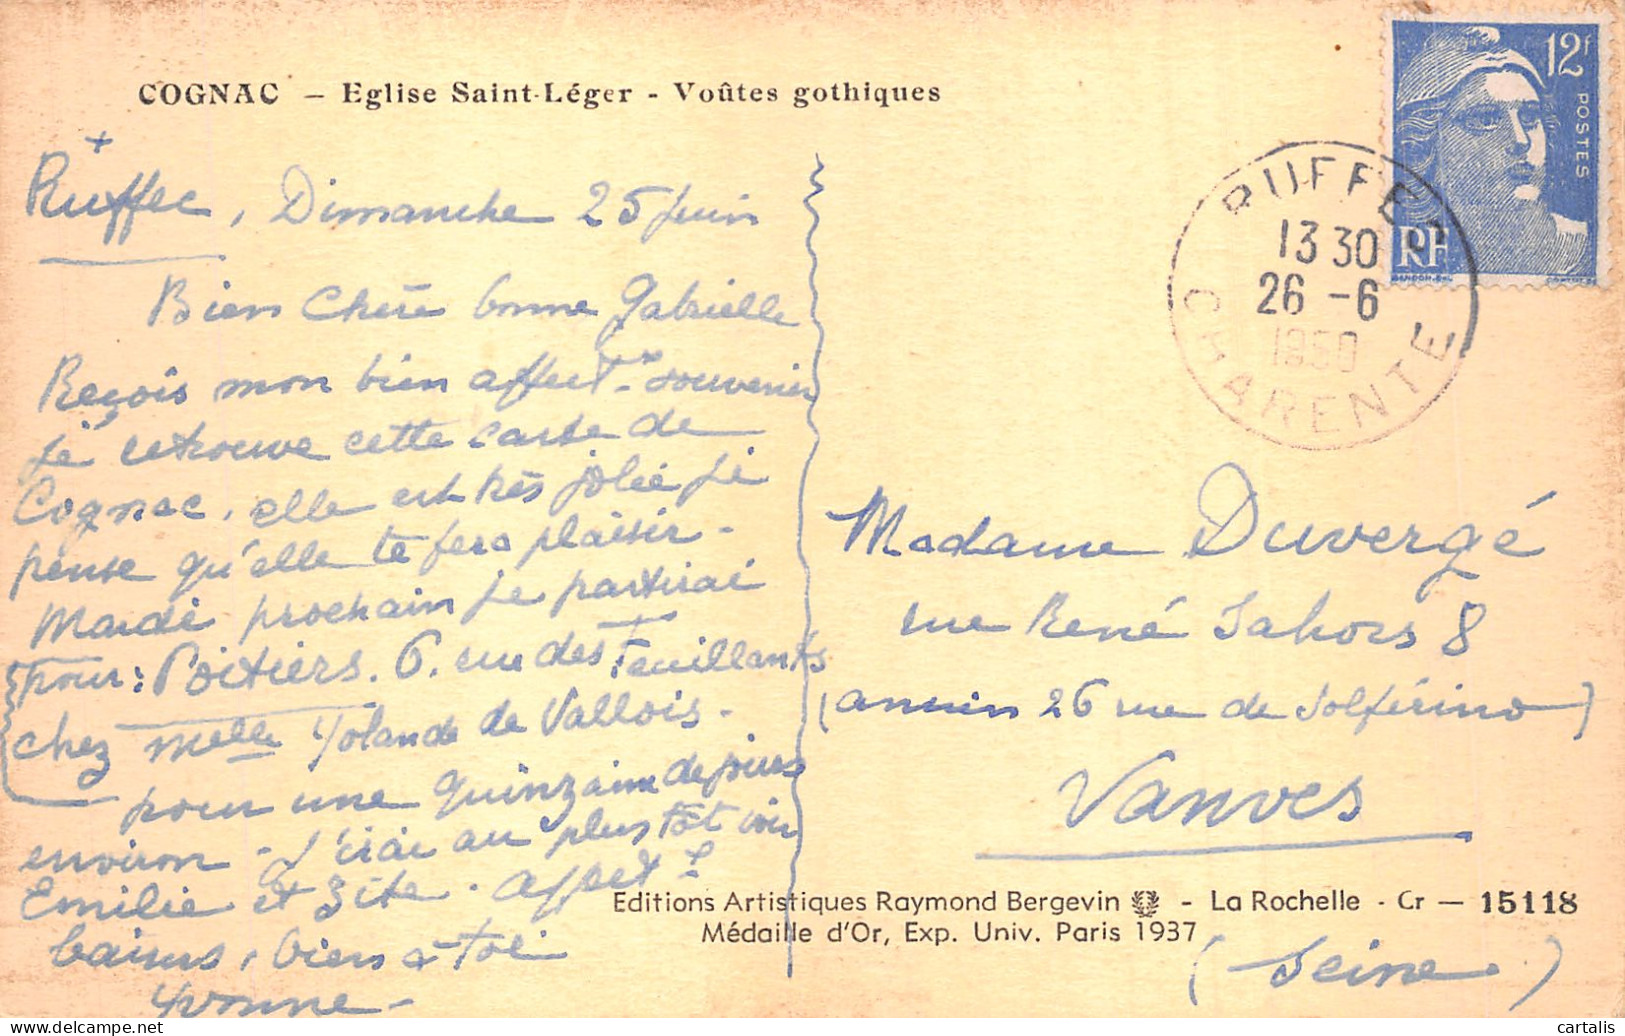 COGNAC – Eglise Saint-Léger - Voûtes gothiques
12f
POSTES
RF
RUFFEC
13 30
26 -6
1950
CHARENTE
+
Ruffec, Dimanche 25 Juin
Bien Chère bonne Gabrielle
Reçois mon bien affect. souvenir
je retrouve cette carte de
Cognac, elle est très jolie je
pense qu'elle te fera plaisir -
Mardi prochain je partirai
pour: Poitiers. 6. rue des Feuillants
chez Melle Yolande de Vallois -
pour une quinzaine de jours
environ - J'irai au plus tôt voir
Emilie et Zite. affect.
baisers, bien à toi
Yvonne -
Madame Duvergé
rue René Sahors 8
(ancien 26 rue de Solférino)
Vanves
(Seine)
Editions Artistiques Raymond Bergevin - La Rochelle - Cr — 15118
Médaille d'Or, Exp. Univ. Paris 1937
cartalis
www.delcampe.net